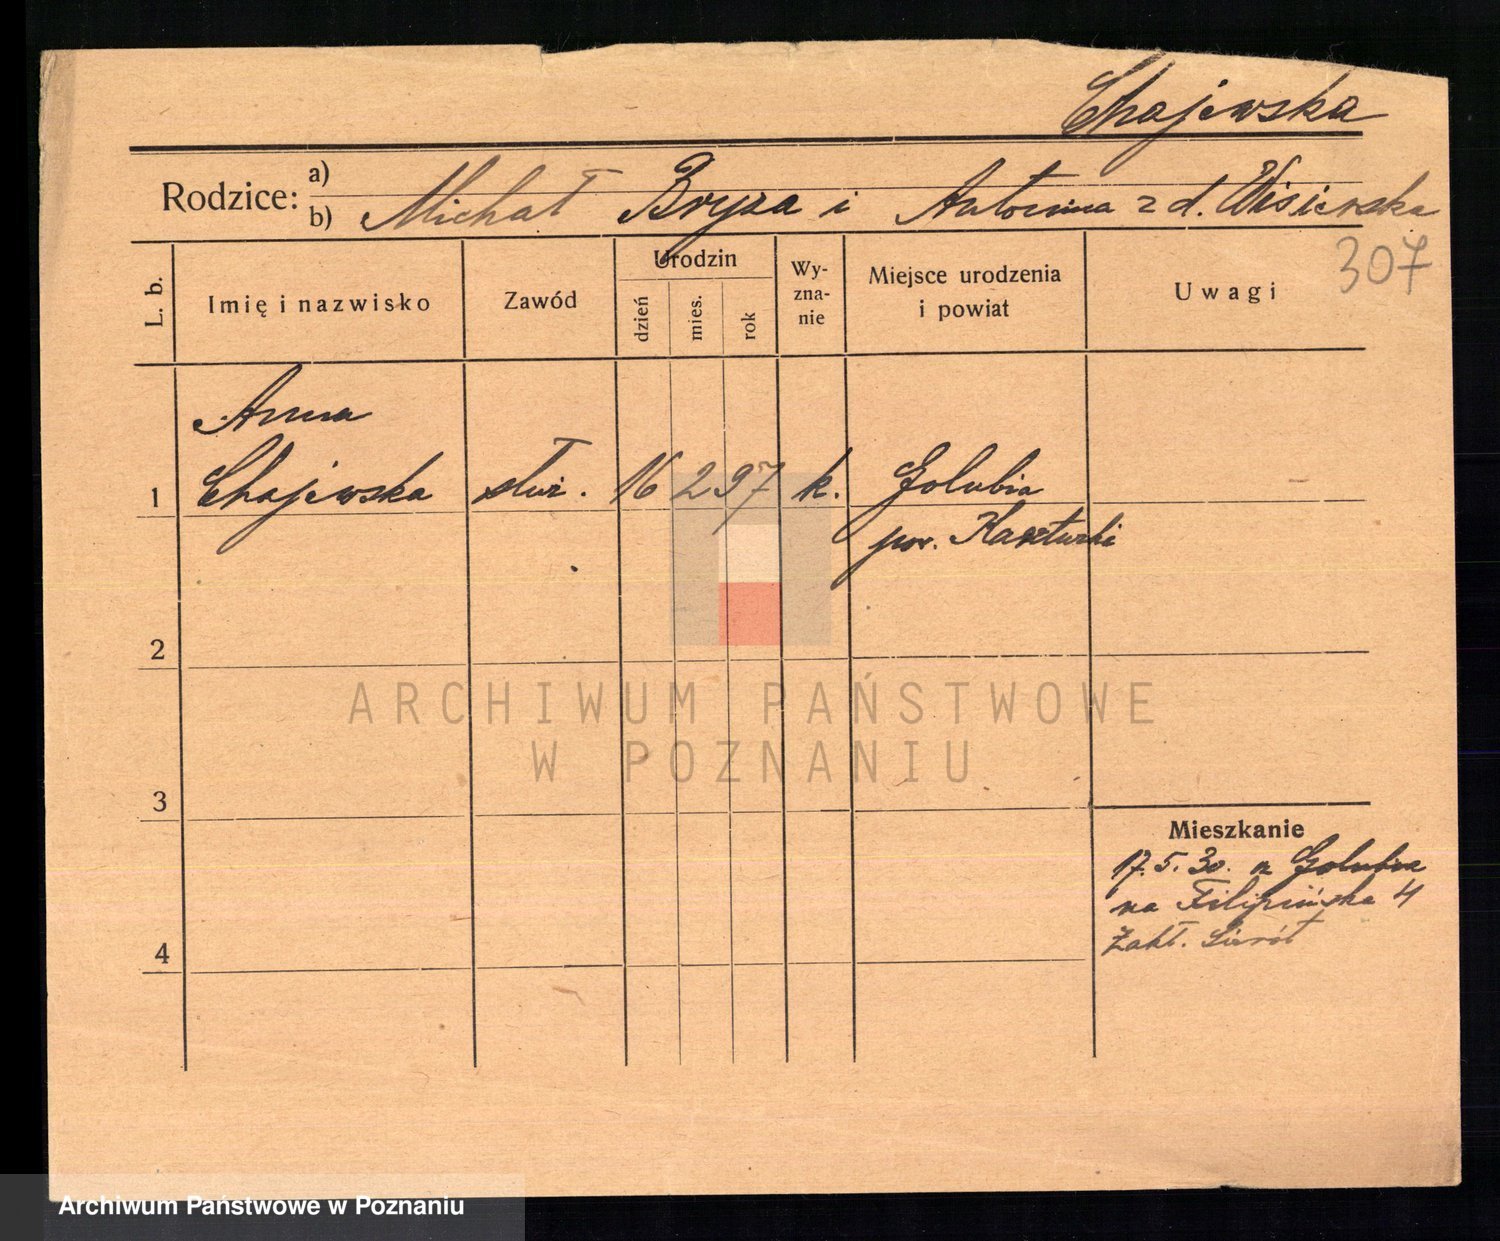 Chajewska
Rodzice: a)
b) Michał Bryza i Antonina z d. Wisierska
307
L. b.
Imię i nazwisko
Zawód
Urodzin
dzień
mies.
rok
Wy-
zna-
nie
Miejsce urodzenia
i powiat
Uwagi
Anna
1 Chajewska służ. 16 2 97 k. Golubia
pow. Kartuski
2
ARCHIWUM PAŃSTWOWE
W POZNANIU
3
Mieszkanie
17.5.30. z Golubia
na Filipińska 4
Zakł. Sierót
4
Archiwum Państwowe w Poznaniu